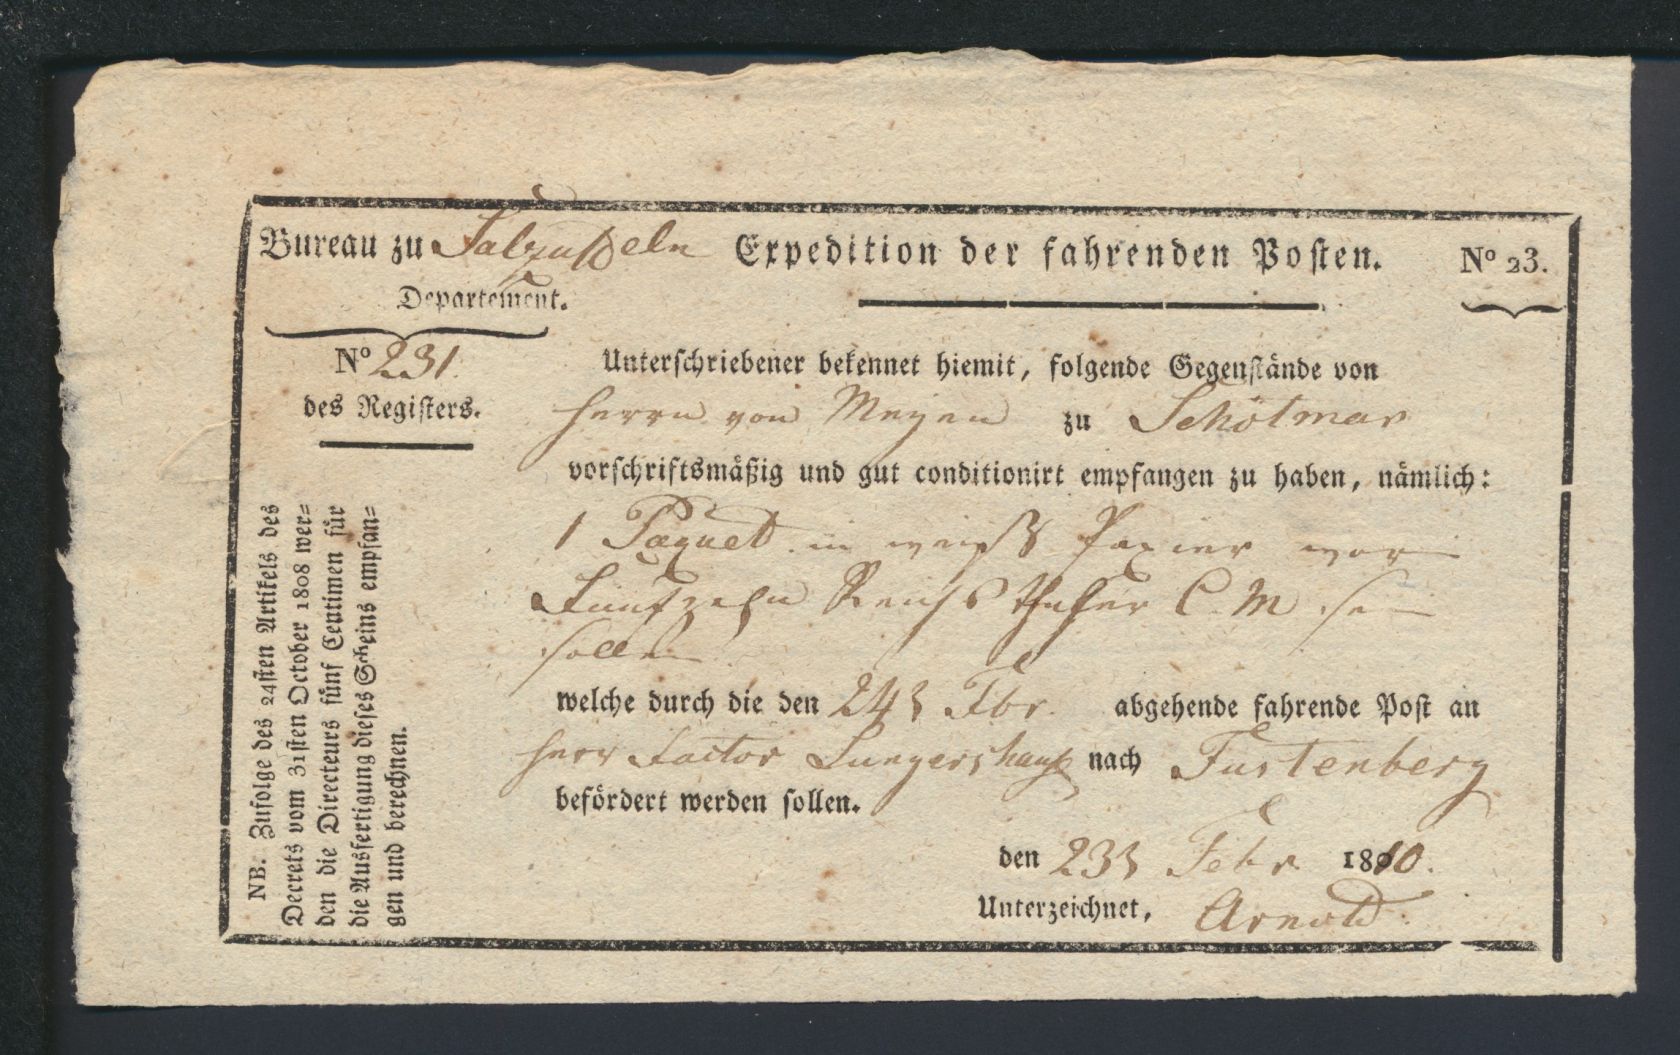 Bureau zu Salzufleln Expedition der fahrenden Posten. Nº 23.
Departement.
Nº 231.
des Registers.
Unterschriebener bekennet hiemit, folgende Gegenstände von
Herrn von Meyen zu Schötmar
vorschriftsmäßig und gut conditionirt empfangen zu haben, nämlich:
1 Paquet in weiß Papier worin
Funfzehn Reichsthaler C. M. sein
sollen
welche durch die den 24t Fbr. abgehende fahrende Post an
Herr Factor Lungershauß nach Furstenberg
befördert werden sollen.
den 23t Febr. 1810.
Unterzeichnet, Arnold.
NB. Zufolge des 24sten Artikels des
Decrets vom 31sten October 1808 wer=
den die Directeurs fünf Centimen für
die Ausfertigung dieses Scheins empfan=
gen und berechnen.